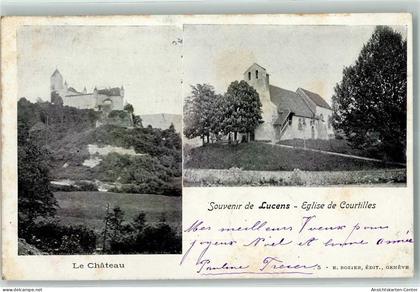 Souvenir de Lucens - Eglise de Courtilles
Mes meilleurs Vœux pour
joyeux Noël et bonne année
Pauline
Le Château
E. ROZIER, ÉDIT., GENÈVE
www.Ansichtskarten-Center.de